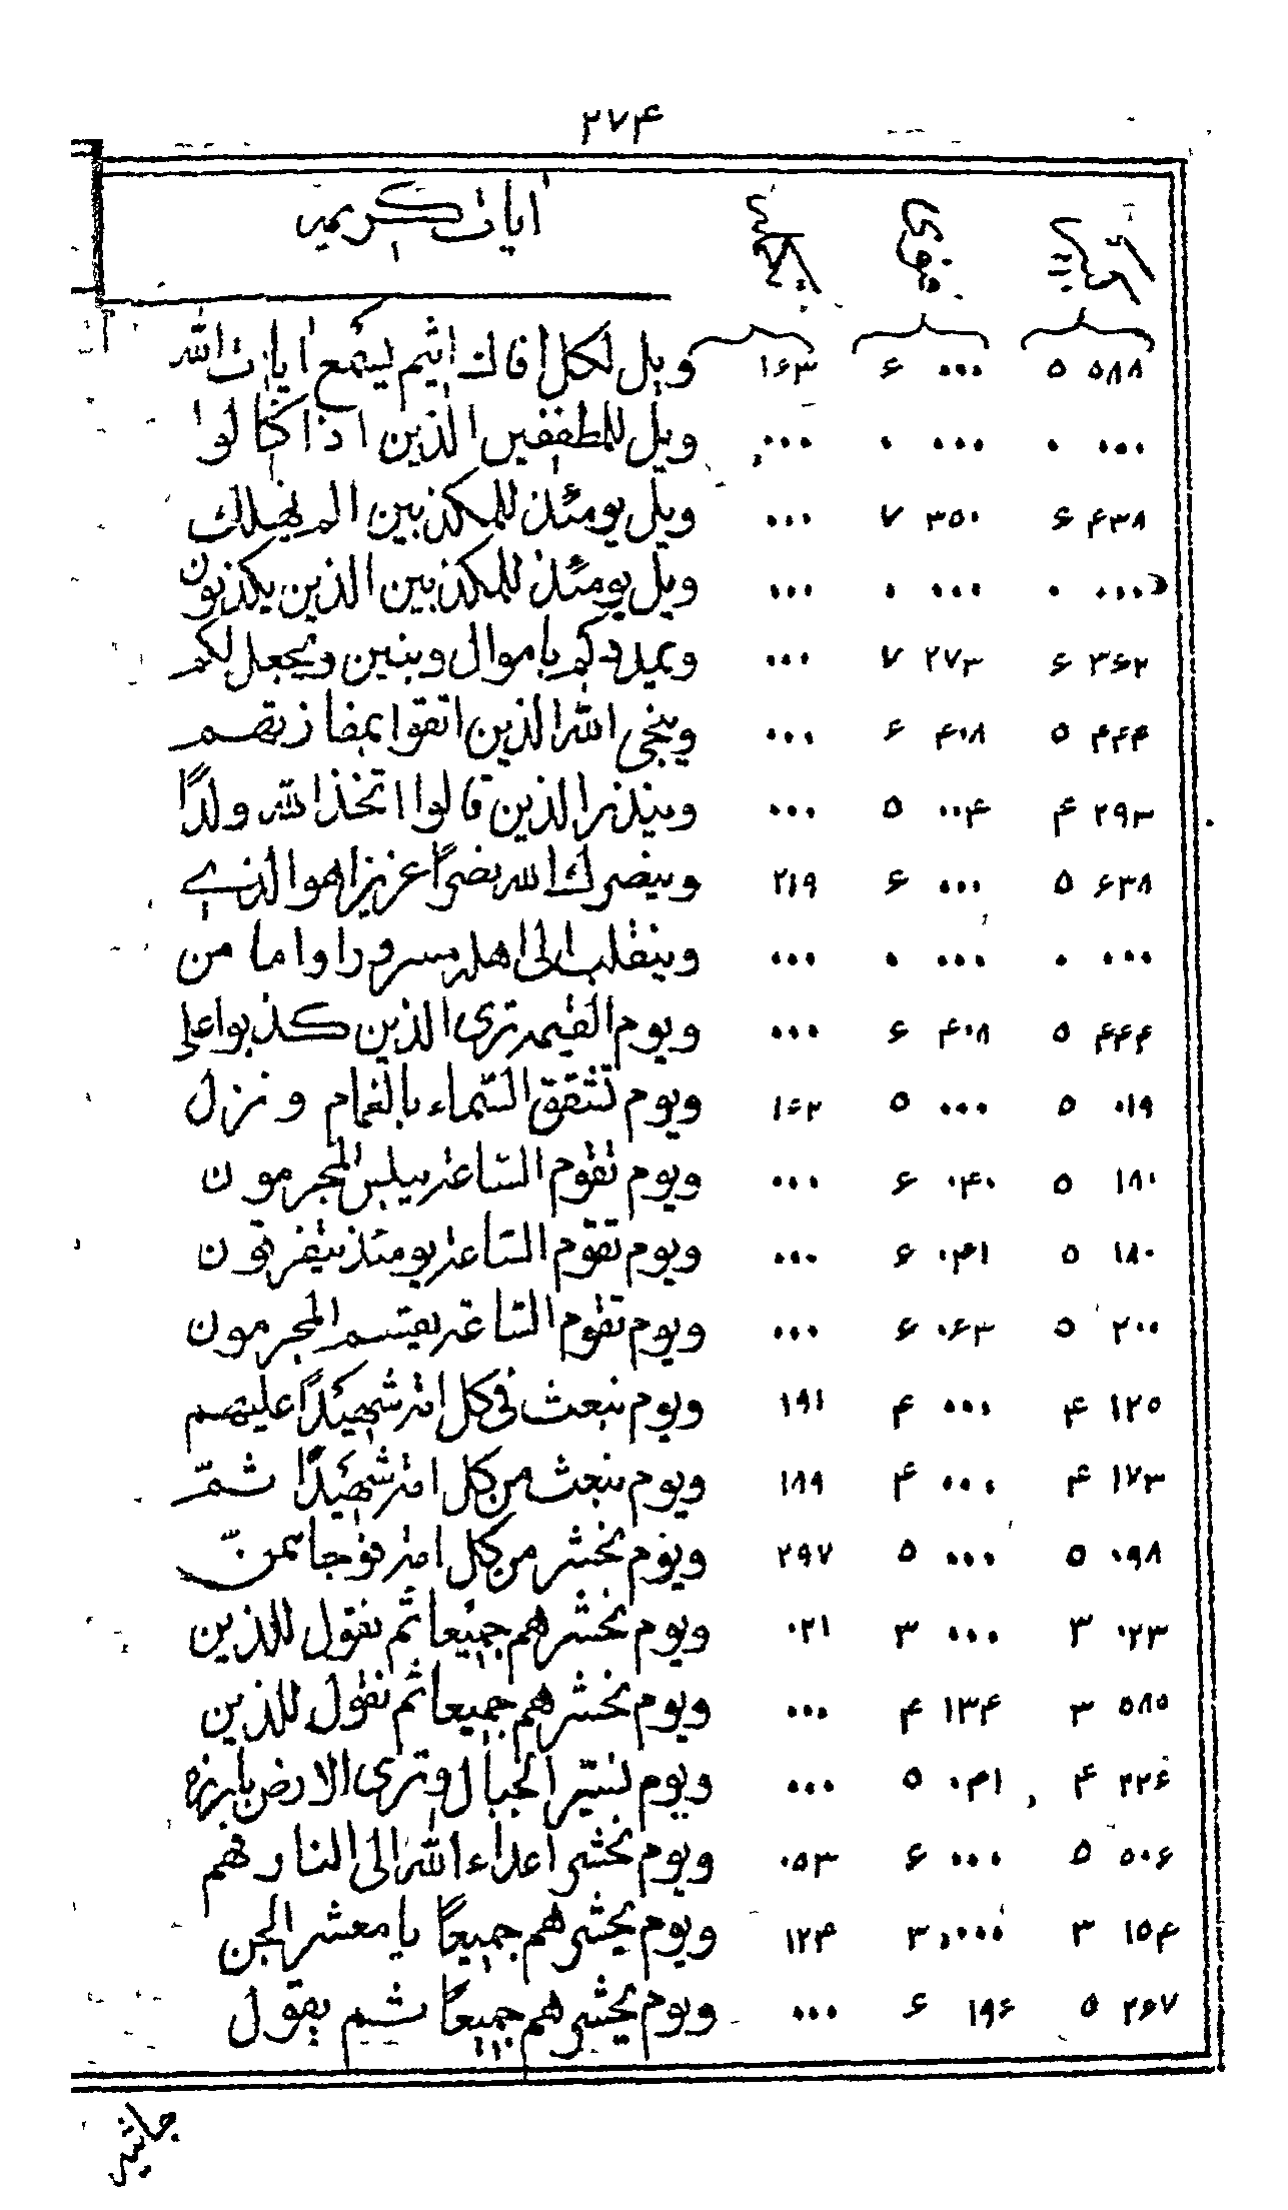 ۲۷۴
ایات کریمه
۵۸۸ ۵ ۰۰۰ ۶ ۱۶۳ ویل لکل افاك اثیم یسمع ایات الله
۰۰۰ ۰ ۰۰۰ ۰ ۰۰۰ ویل للمطففین الذین اذا کتالوا
۴۳۸ ۶ ۳۵۰ ۷ ۰۰۰ ویل یومئذ للمکذبین الم نهلك
۰۰۰ ۰ ۰۰۰ ۰ ۰۰۰ ویل یومئذ للمکذبین الذین یکذبون
۳۶۲ ۶ ۲۷۳ ۷ ۰۰۰ ویمددکم باموال وبنین ویجعل لکم
۴۴۴ ۵ ۴۰۸ ۶ ۰۰۰ وینجی الله الذین اتقوا بمفازتهم
۲۹۳ ۴ ۰۰۴ ۵ ۰۰۰ وینذر الذین قالوا اتخذ الله ولدًا
۶۳۸ ۵ ۰۰۰ ۶ ۲۱۹ وینصرك الله نصرًا عزیزا هوا لذی
۰۰۰ ۰ ۰۰۰ ۰ ۰۰۰ وینقلب الی اهله مسرورا واما من
۴۴۴ ۵ ۴۰۸ ۶ ۰۰۰ ویوم القیمه تری الذین کذبوا علی
۰۱۹ ۵ ۰۰۰ ۵ ۱۶۲ ویوم تشقق السماء بالغمام ونزل
۱۸۰ ۵ ۰۴۰ ۶ ۰۰۰ ویوم تقوم الساعه یبلس المجرمون
۱۸۰ ۵ ۰۴۱ ۶ ۰۰۰ ویوم تقوم الساعه یومئذ یتفرقون
۲۰۰ ۵ ۰۶۳ ۶ ۰۰۰ ویوم تقوم الساعه یقسم المجرمون
۱۲۵ ۴ ۰۰۰ ۴ ۱۹۱ ویوم نبعث فی کل امه شهیدًا علیهم
۱۷۳ ۴ ۰۰۰ ۴ ۱۸۹ ویوم نبعث من کل امه شهیدًا ثمّ
۰۹۸ ۵ ۰۰۰ ۵ ۲۹۷ ویوم نحشر من کل امه فوجا ممنّ
۰۲۳ ۳ ۰۰۰ ۳ ۰۲۱ ویوم نحشرهم جمیعا ثم نقول للذین
۵۸۵ ۳ ۱۳۴ ۴ ۰۰۰ ویوم نحشرهم جمیعا ثم نقول للذین
۲۲۶ ۴ ۰۴۱ ۵ ۰۰۰ ویوم نسیر الجبال وتری الارض بارزه
۵۰۶ ۵ ۰۰۰ ۶ ۰۵۳ ویوم یحشر اعداء الله الی النار هم
۱۵۴ ۳ ۰۰۰ ۳ ۱۲۴ ویوم یحشرهم جمیعًا یا معشر الجن
۲۶۷ ۵ ۱۹۶ ۶ ۰۰۰ ویوم یحشرهم جمیعًا ثم یقول